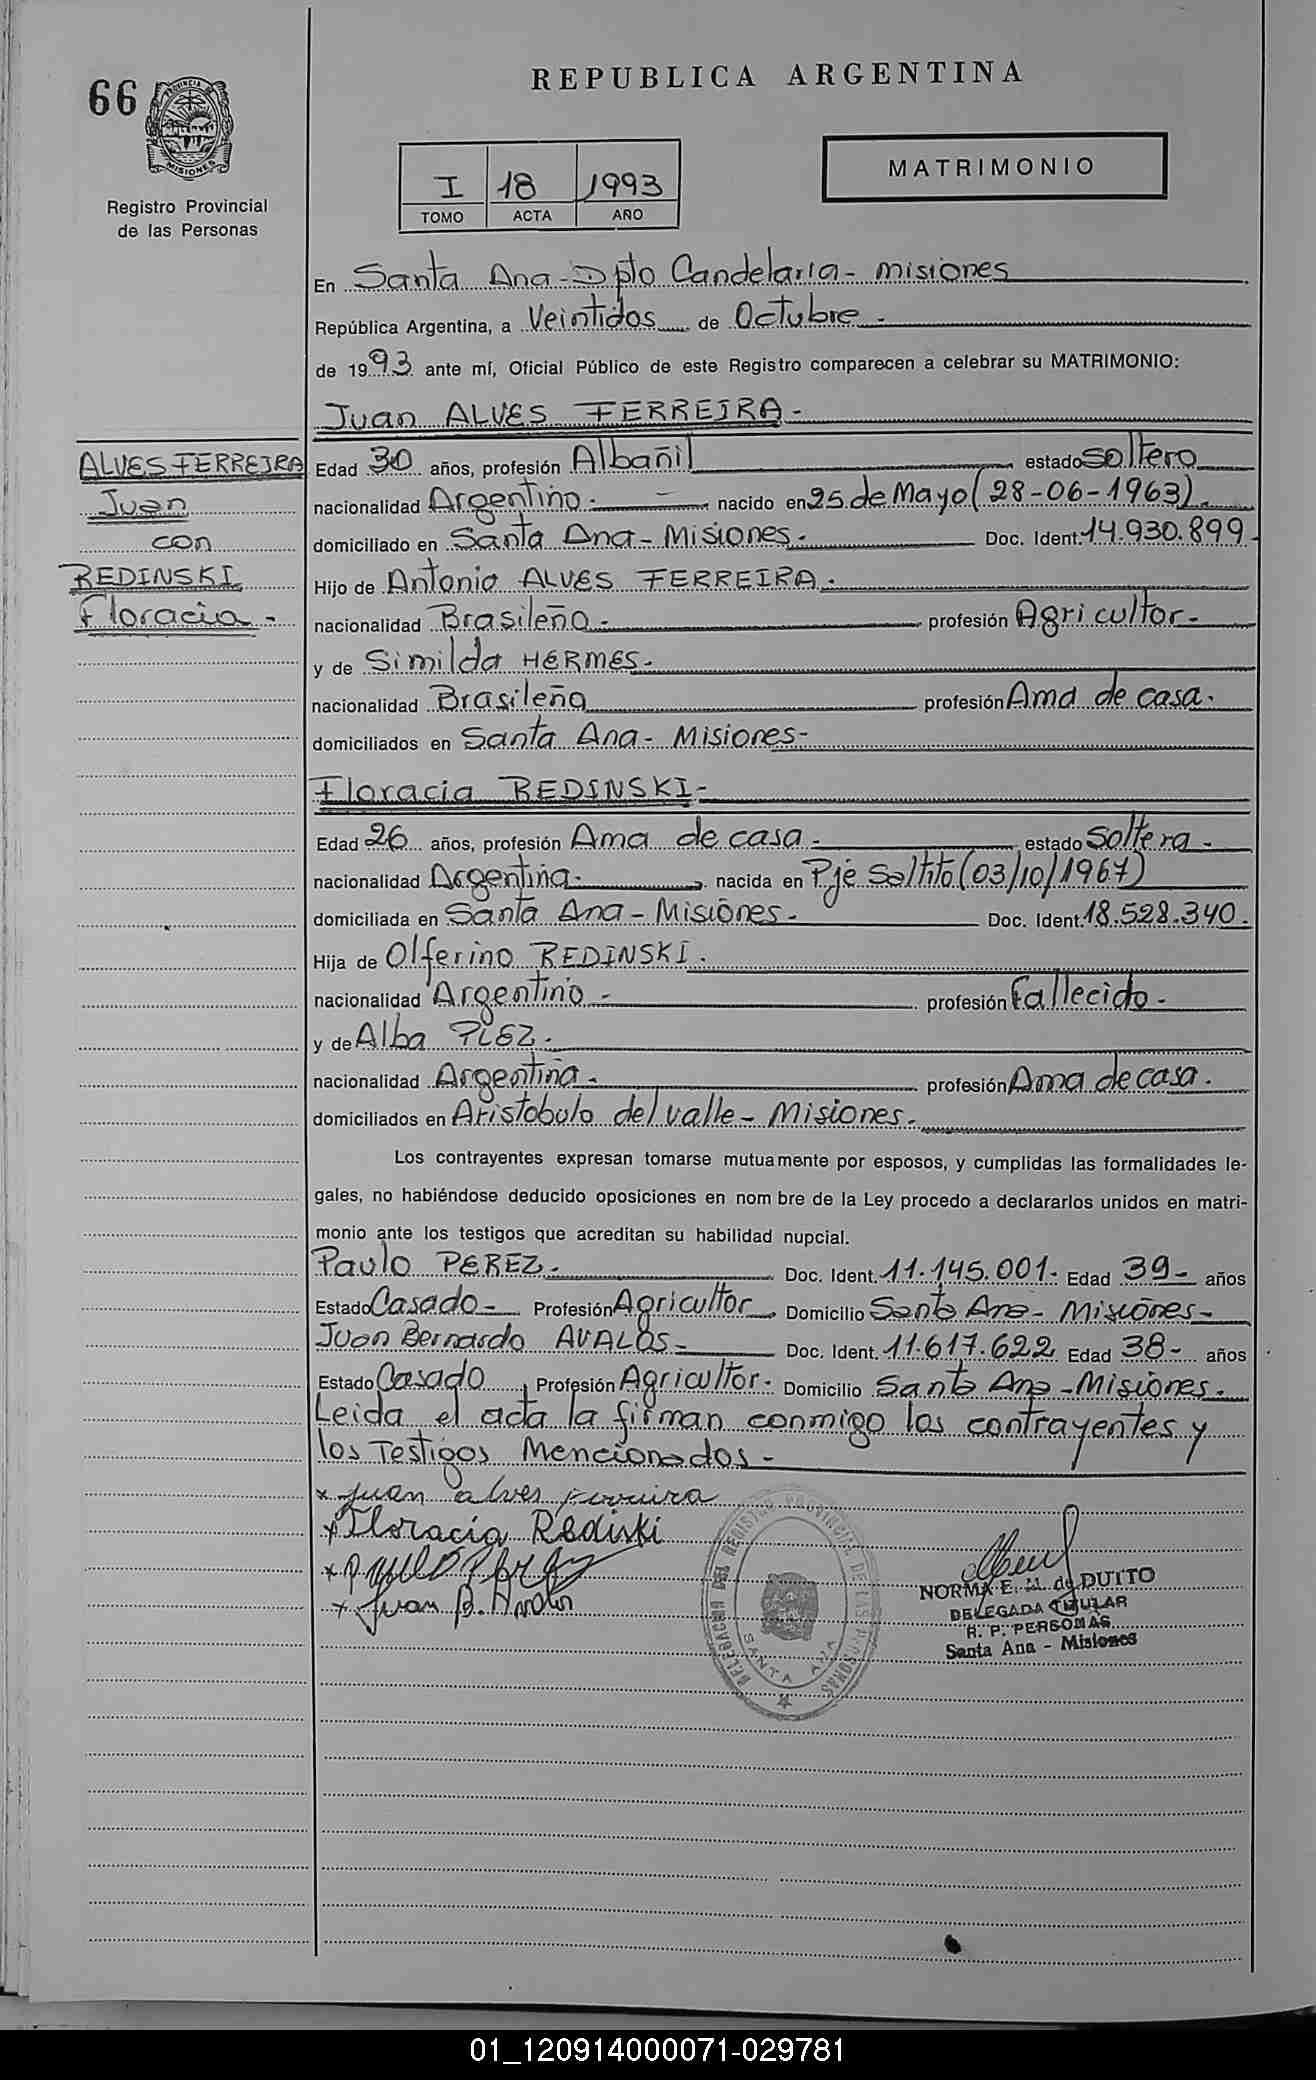 66
REPUBLICA ARGENTINA
PROVINCIA DE MISIONES
Registro Provincial
de las Personas
I 18 1993
TOMO ACTA AÑO
MATRIMONIO
En Santa Ana - Dpto Candelaria - Misiones
República Argentina, a Veintidos de Octubre -
de 1993 ante mí, Oficial Público de este Registro comparecen a celebrar su MATRIMONIO:
Juan ALVES FERREIRA -
ALVES FERREIRA
Juan
con
REDINSKI
Floracia -
Edad 30 años, profesión Albañil estado soltero
nacionalidad Argentino - nacido en 25 de Mayo (28-06-1963) -
domiciliado en Santa Ana - Misiones - Doc. Ident. 14.930.899 -
Hijo de Antonio ALVES FERREIRA -
nacionalidad Brasileña - profesión Agricultor -
y de Similda HERMES -
nacionalidad Brasileña profesión Ama de casa.
domiciliados en Santa Ana - Misiones -
Floracia REDINSKI -
Edad 26 años, profesión Ama de casa - estado Soltera -
nacionalidad Argentina - nacida en Pjé Saltito (03/10/1967)
domiciliada en Santa Ana - Misiones - Doc. Ident. 18.528.340.
Hija de Olferino REDINSKI.
nacionalidad Argentino - profesión Fallecido -
y de Alba PLEZ.
nacionalidad Argentina - profesión Ama de casa.
domiciliados en Aristobulo del valle - Misiones -
Los contrayentes expresan tomarse mutuamente por esposos, y cumplidas las formalidades le-
gales, no habiéndose deducido oposiciones en nom bre de la Ley procedo a declararlos unidos en matri-
monio ante los testigos que acreditan su habilidad nupcial.
Paulo PEREZ - Doc. Ident. 11.145.001. Edad 39 - años
Estado Casado - Profesión Agricultor Domicilio Santa Ana - Misiones -
Juan Bernardo AVALOS - Doc. Ident. 11.617.622 Edad 38 - años
Estado Casado Profesión Agricultor. Domicilio Santa Ana - Misiones.
Leida el acta la firman conmigo los contrayentes y
los Testigos Mencionados -
x Juan alves Ferreira
x Floracia Rediski
x
x Juan B.
DELEGACION DEL REGISTRO PROVINCIAL DE LAS PERSONAS
SANTA ANA
NORMA E. M. de DUTTO
DELEGADA TITULAR
R. P. PERSONAS
Santa Ana - Misiones
01_120914000071-029781